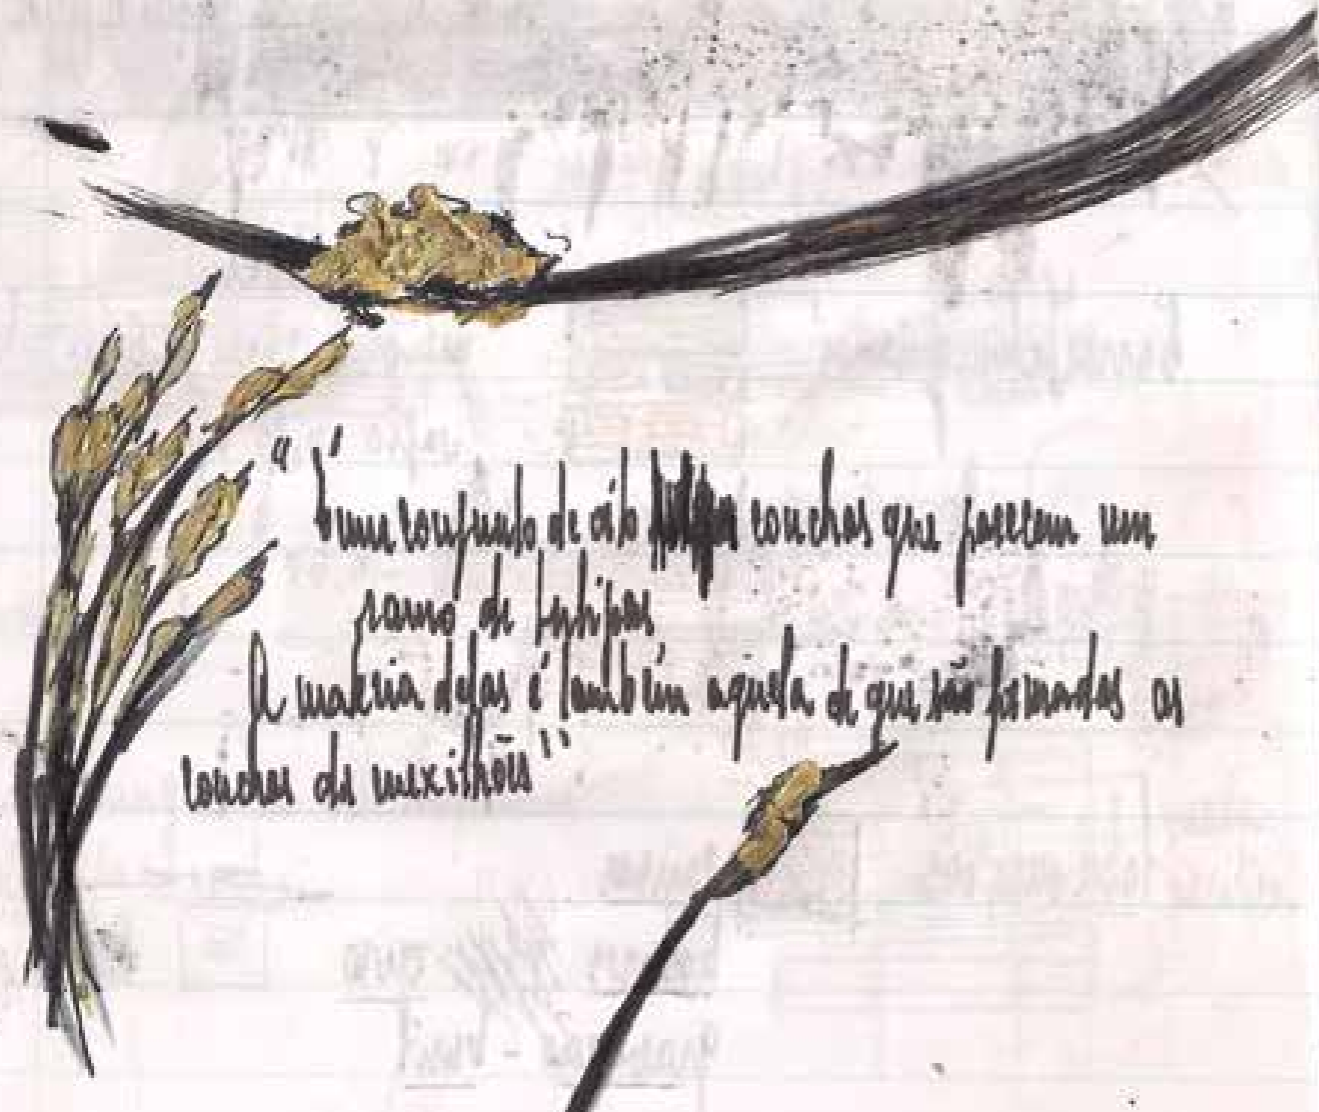 "É um conjunto de oito conchas que parecem um
ramo de tulipas
A materia delas é também aquela de que são formadas as
conchas de mexilhões"